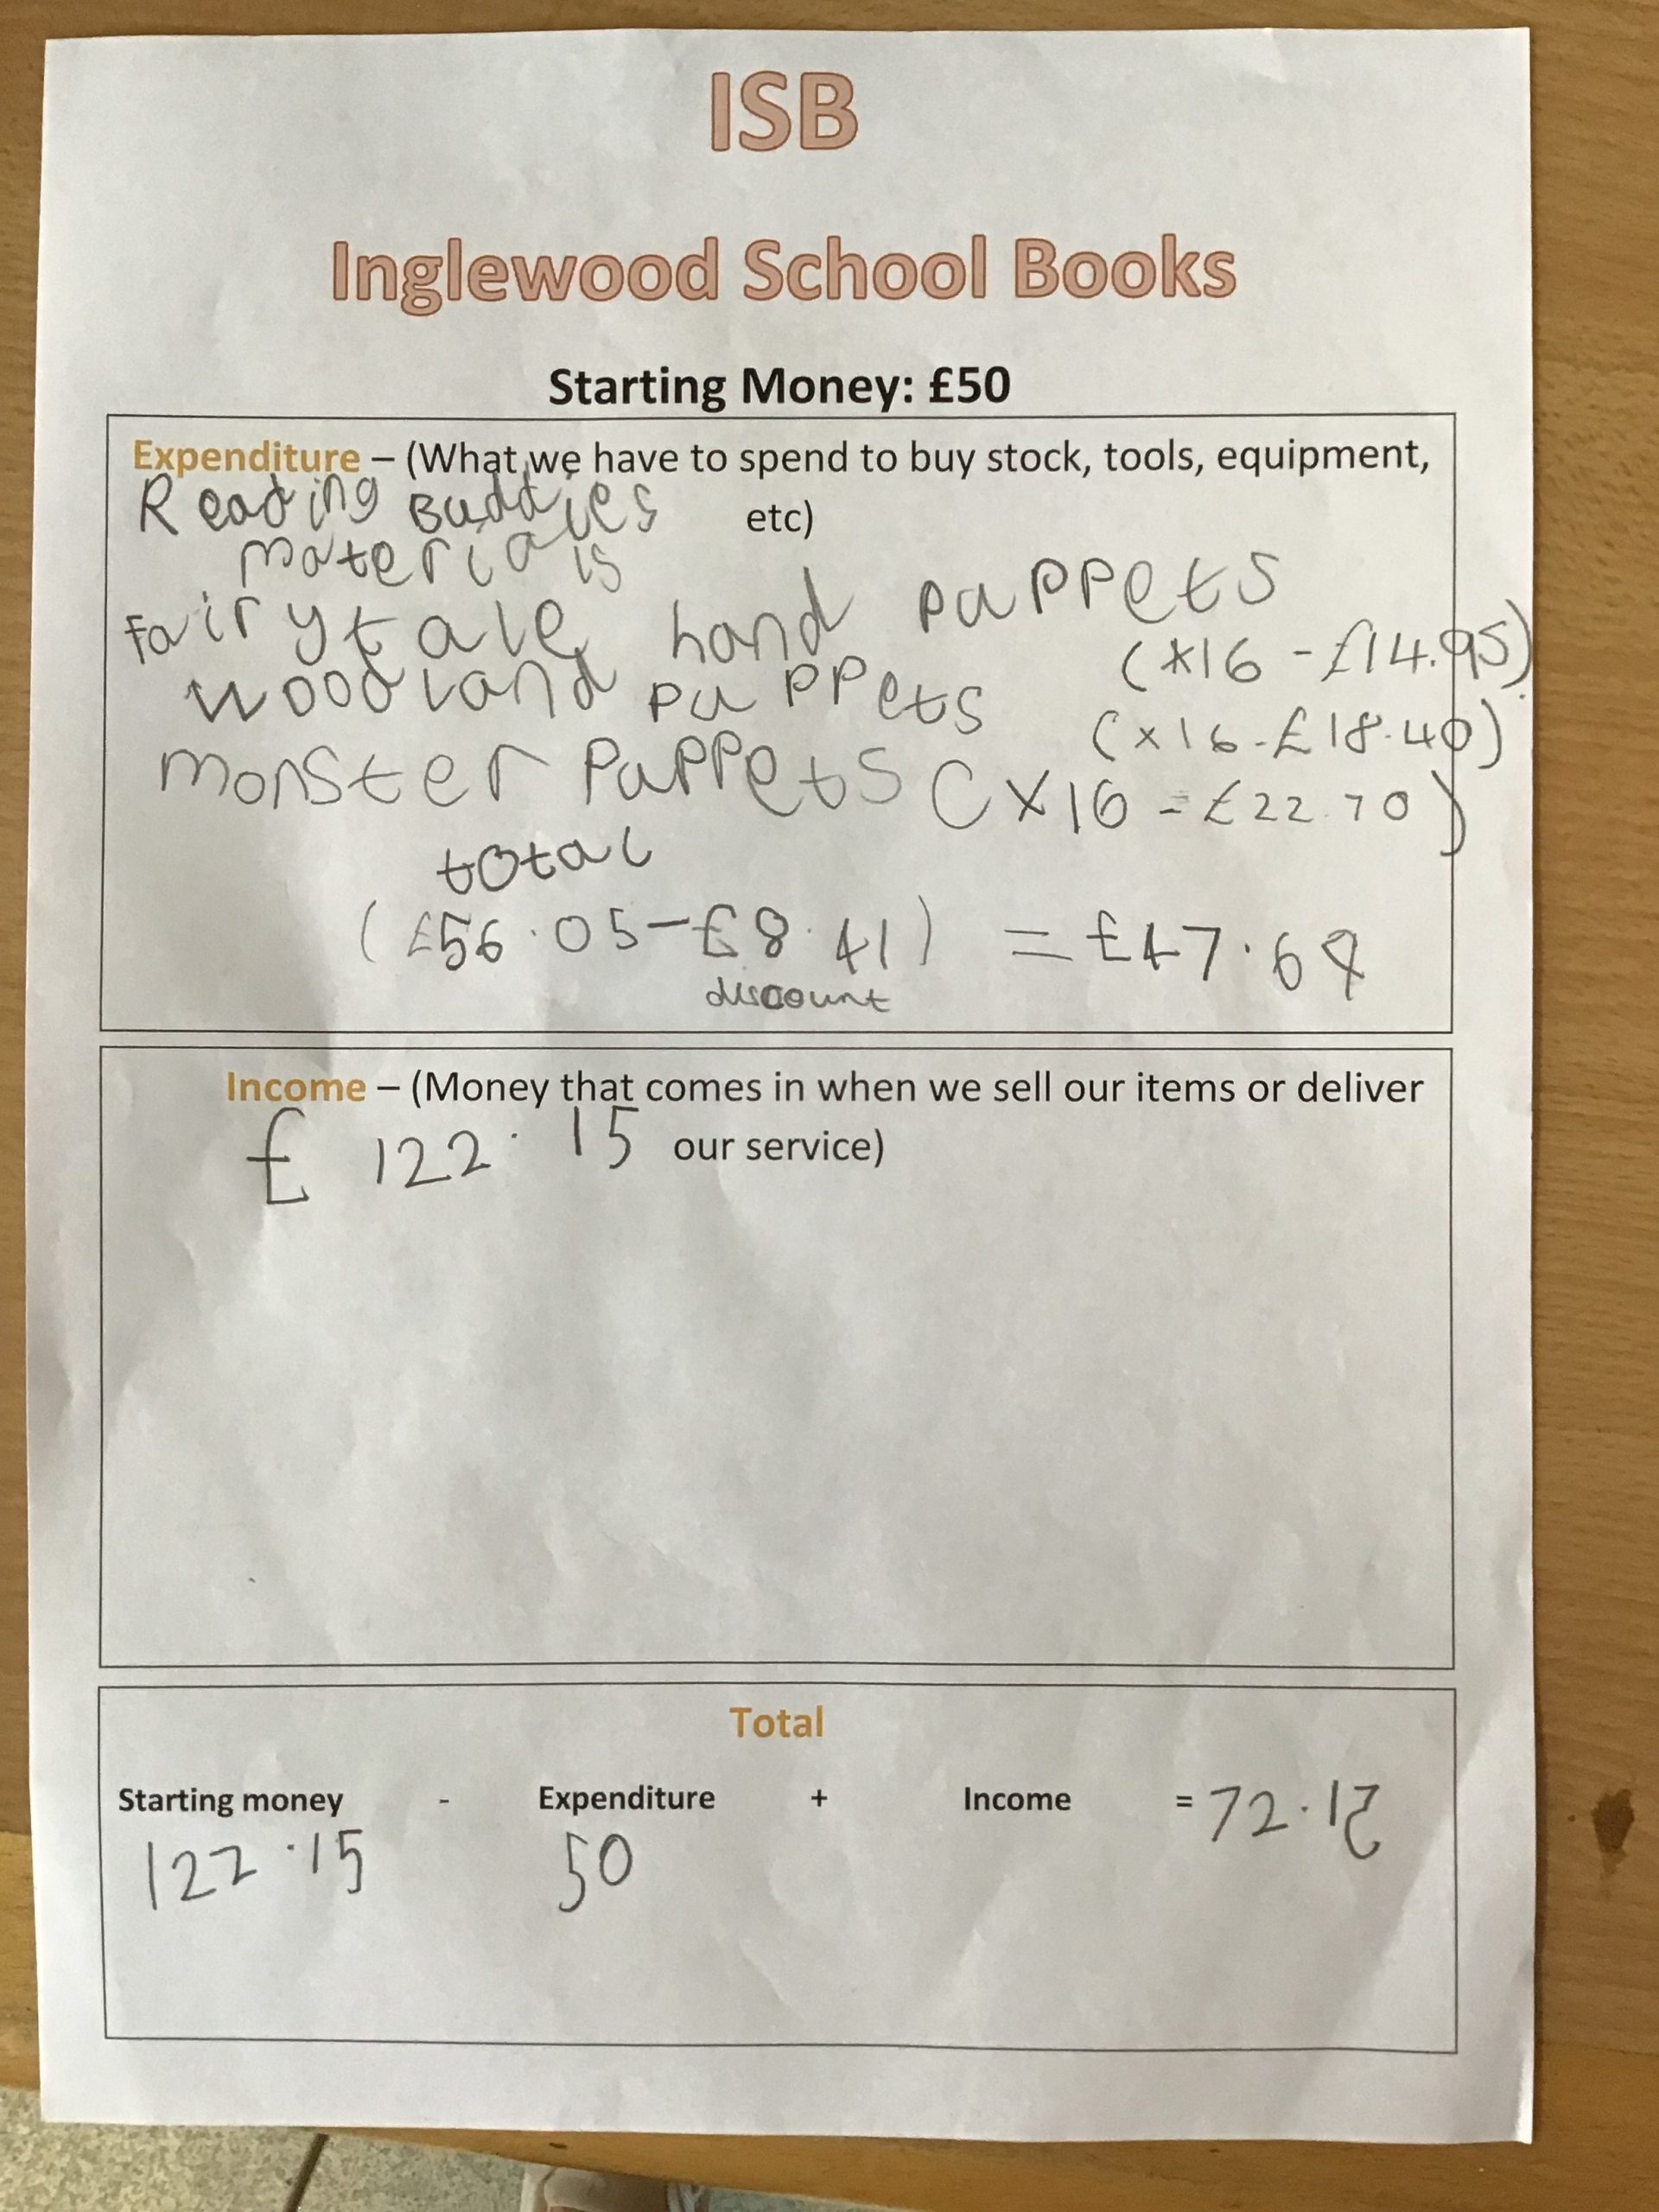 ISB
Inglewood School Books
Starting Money: £50
Expenditure – (What we have to spend to buy stock, tools, equipment,
etc)
Reading Buddies
materials
fairytale hand puppets
(x16 - £14.95)
woodland puppets
(x16 - £18.40)
monster Puppets (x16 - £22.70)
total
(£56.05 - £8.41) = £47.64
discount
Income – (Money that comes in when we sell our items or deliver
our service)
£ 122.15
Total
Starting money - Expenditure + Income = 72.15
122.15 50